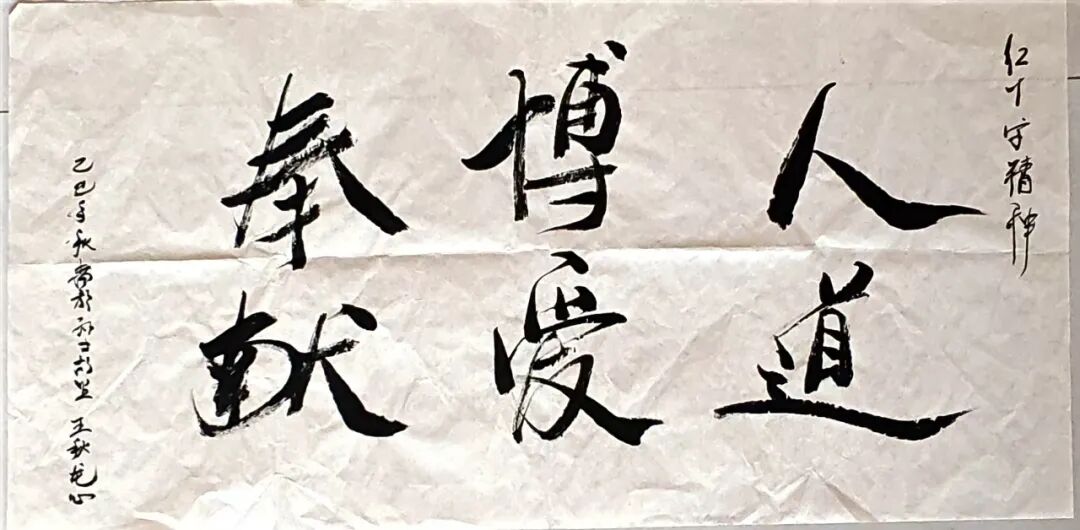 红十字精神
人道
博爱
奉献
乙巳年秋 王秋龙